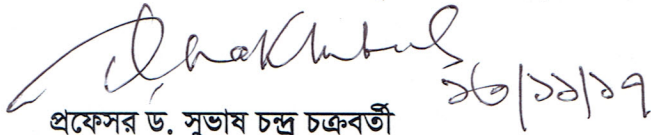 ১৩/১১/১৭
প্রফেসর ড. সুভাষ চন্দ্র চক্রবর্তী